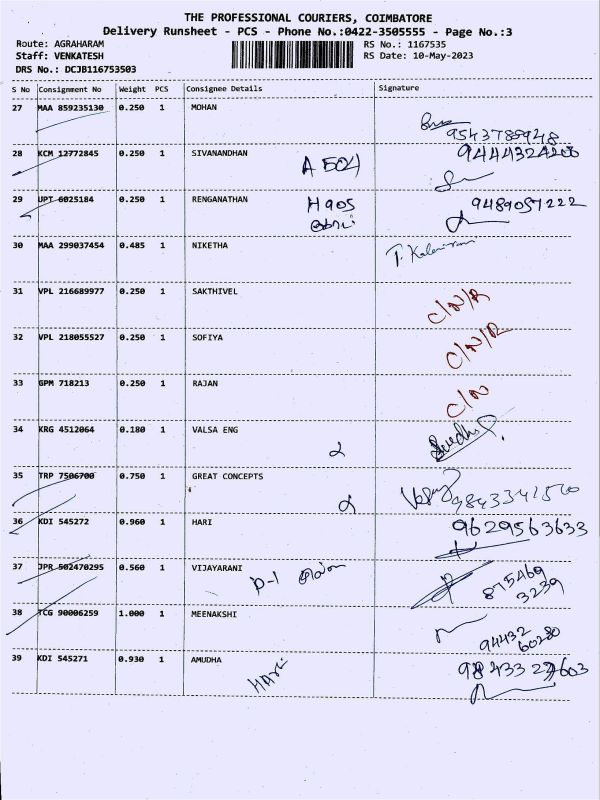 THE PROFESSIONAL COURIERS, COIMBATORE
Delivery Runsheet - PCS - Phone No.:0422-3505555 - Page No.:3
Route: AGRAHARAM RS No.: 1167535
Staff: VENKATESH RS Date: 10-May-2023
DRS No.: DCJB116753503
S No Consignment No Weight PCS Consignee Details Signature
27 MAA 859235130 0.250 1 MOHAN
9543789948
28 KCM 12772845 0.250 1 SIVANANDHAN A 504
29 UPT 6025184 0.250 1 RENGANATHAN H905 9489057222
30 MAA 299037454 0.485 1 NIKETHA
31 VPL 216689977 0.250 1 SAKTHIVEL C/N/R
32 VPL 218055527 0.250 1 SOFIYA C/N/R
33 GPM 718213 0.250 1 RAJAN C/N
34 KRG 4512064 0.180 1 VALSA ENG
35 TRP 7506700 0.750 1 GREAT CONCEPTS 9843341500
36 KDI 545272 0.960 1 HARI 9629563633
37 JPR 502470295 0.560 1 VIJAYARANI D-1 875469
3239
38 TCG 90006259 1.000 1 MEENAKSHI
94432
60280
39 KDI 545271 0.930 1 AMUDHA HARI